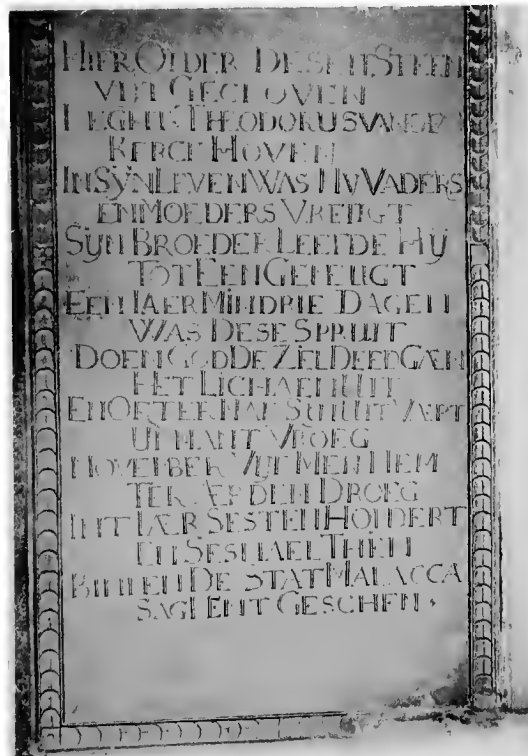 HIER ONDER DESEN STEEN
UIJT GECLOVEN
LEGHT THEODORUS VANDER
KERCK HOVEN
IN SŸN LEVEN WAS HŸ VADERS
EN MOEDERS VREUGT
SŸN BROEDER LEEFDE HŸ
TOT EEN GENEUGT
EEN IAER MIN DRIE DAGEN
WAS DESE SPRUIT
DOEN GOD DE ZEL DEED GÆN
HET LICHAEM UIT
EN OFTER
VROEG
NOVEMBER MEN HEM
TER ÆRDEN DROEG
INT IÆR SESTEN HONDERT
EN SESMAEL THIEN
BINNEN DE STAT MALACCA
SAGH ENT GESCHEN